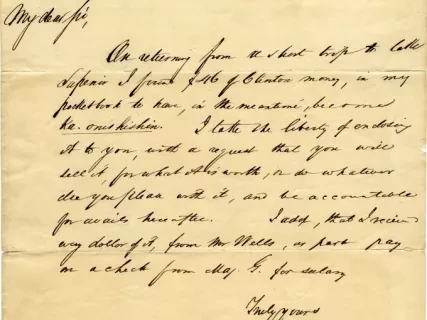 My dear Sir,
On returning from a short trip to Lake
Superior I found $46 of Clinton money, in my
pocketbook to have, in the meantime, become
Ka. onishishin. I take the liberty of enclosing
it to you, with a request that you will
sell it, for what it is worth, or do whatever
else you please with it, and be accountable
for avails hereafter. I add, that I received
every dollar of it, from Mr Wells, as part pay-
on a check from Maj. G. for salary
Truly yours